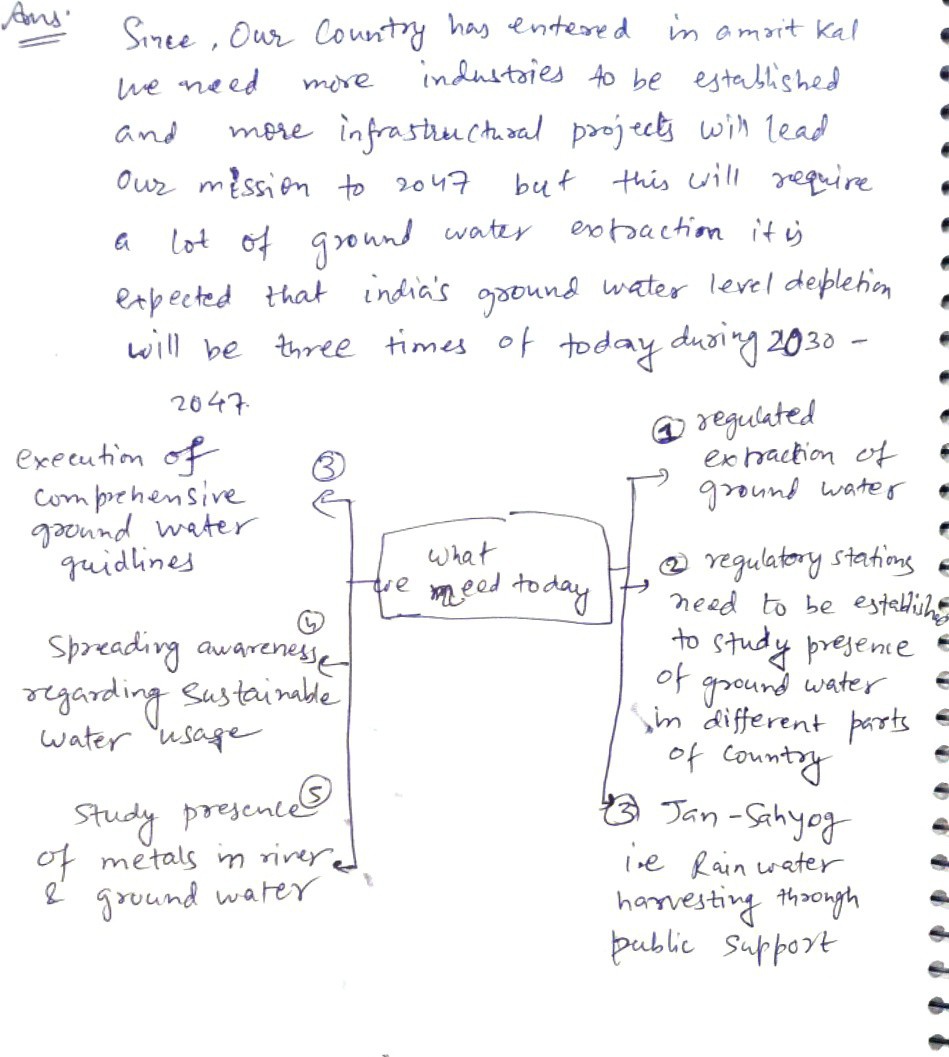 Ans.
Since, Our Country has entered in amrit Kal
we need more industries to be established
and more infrastructural projects will lead
Our mission to 2047 but this will require
a lot of ground water extraction it is
expected that india's ground water level depletion
will be three times of today during 2030 -
2047.
what
we need today
① regulated
extraction of
ground water
② regulatory stations
need to be established
to study presence
of ground water
in different parts
of Country
③ Jan-Sahyog
i.e Rain water
harvesting through
public Support
③
execution of
comprehensive
ground water
guidlines
④
Spreading awareness
regarding Sustainable
water usage
⑤
Study presence
of metals in river
& ground water